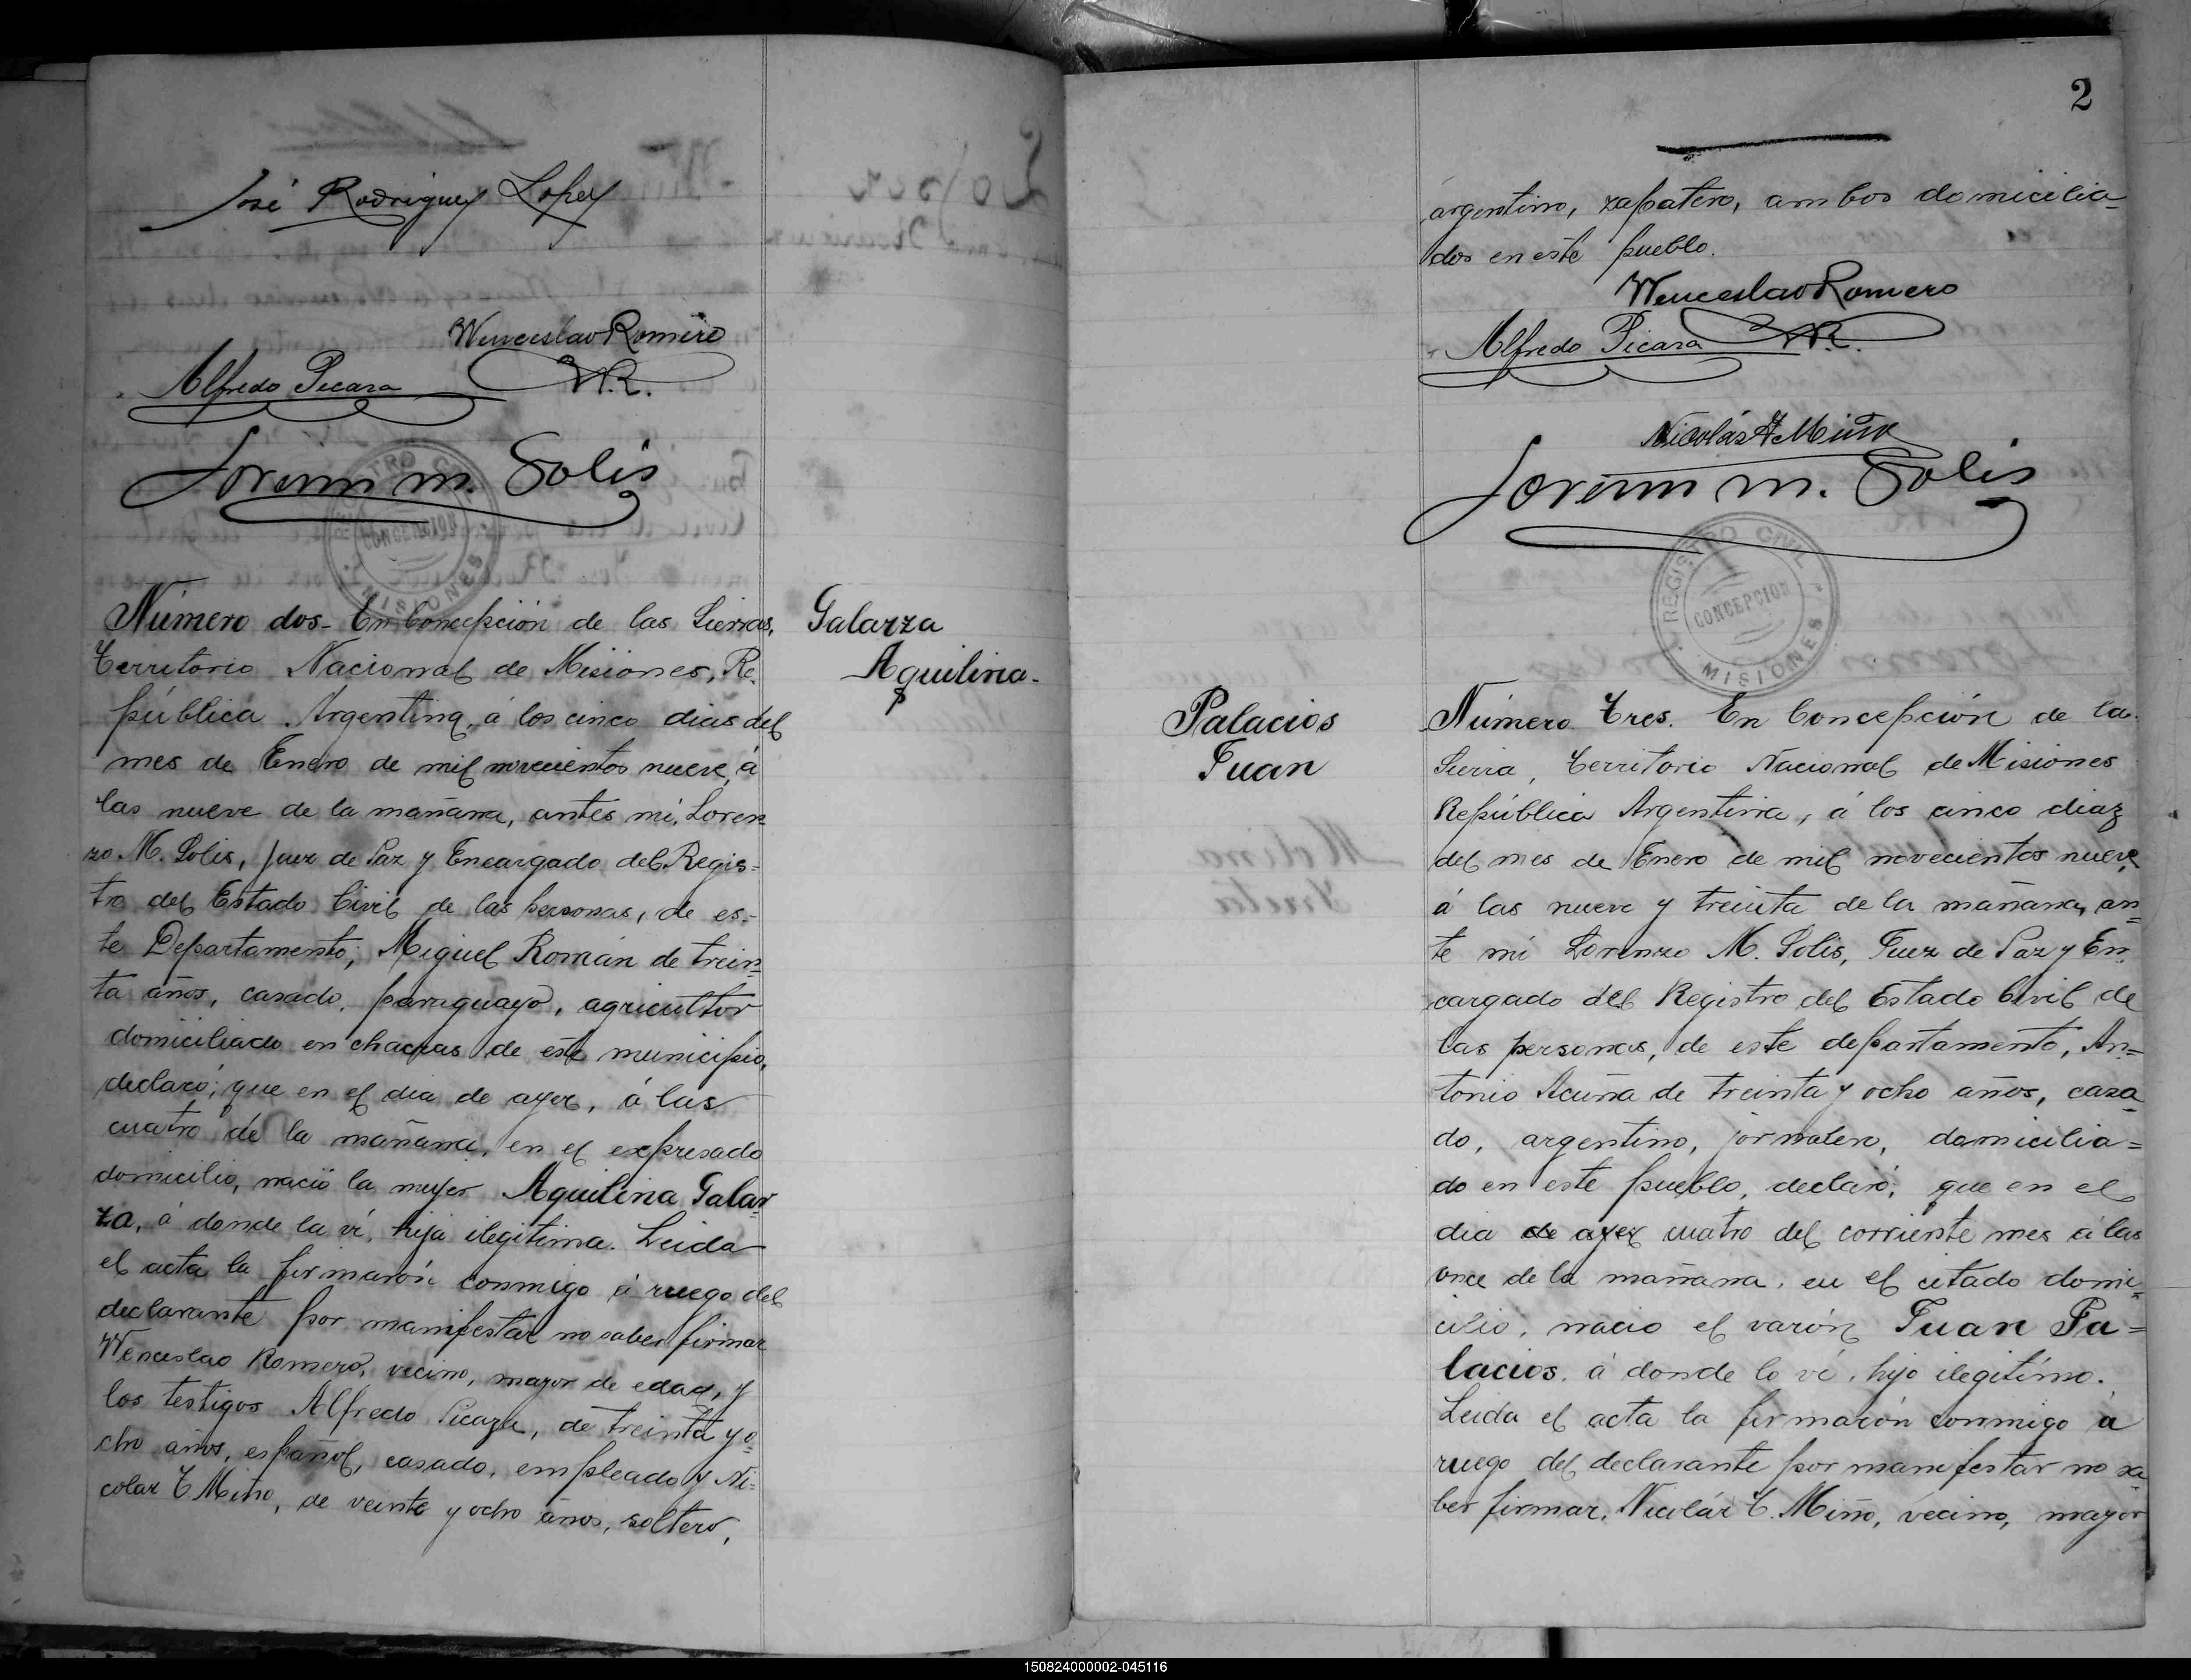 José Rodriguez Lopez
Wenceslao Romero
W.R.
Alfredo Picaza
Lorenzo M. Solis
REGISTRO CIVIL
CONCEPCION
MISIONES
Número dos- En Concepción de las Sierras,
Territorio Nacional de Misiones, Re-
pública Argentina, á los cinco dias del
mes de Enero de mil novecientos nueve, á
las nueve de la mañana, antes mi, Loren-
zo M. Solis, Juez de Paz y Encargado del Regis-
tro del Estado Civil de las personas, de es-
te Departamento; Miguel Román de trein-
ta años, casado, paraguayo, agricultor
domiciliado en chacras de este municipio,
declaró; que en el dia de ayer, á las
cuatro de la mañana, en el expresado
domicilio, nació la mujer Aquilina Galar-
za, á donde la ví, hija ilegitima. Leida
el acta la firmarón conmigo á ruego del
declarante por manifestar no saber firmar
Wenceslao Romero, vecino, mayor de edad, y
los testigos Alfredo Picaza, de treinta y o-
cho años, español, casado, empleado y Ni-
colas T Miño, de veinte y ocho años, soltero,
Galarza
Aquilina-
2
argentino, zapatero, ambos domicilia-
dos en este pueblo.
Wenceslao Romero
W.R.
Alfredo Picaza
Nicolás T Miño
Lorenzo M. Solis
REGISTRO CIVIL
CONCEPCION
MISIONES
Palacios
Juan
Número Tres. En Concepción de la
Sierra, Territorio Nacional de Misiones
República Argentina, á los cinco diaz
del mes de Enero de mil novecientos nueve,
á las nueve y treinta de la mañana, an-
te mi Lorenzo M. Solis, Juez de Paz y En-
cargado del Registro del Estado Civil de
las personas, de este departamento, An-
tonio Acuña de treinta y ocho años, caza-
do, argentino, jornalero, domicilia-
do en este pueblo, declaró; que en el
dia de ayer cuatro del corriente mes á las
once de la mañana, en el citado domi-
cilio, nacio el varón Juan Pa-
lacios, á donde lo ví, hijo ilegitimo.
Leida el acta la firmarón conmigo á
ruego del declarante por manifestar no sa-
ber firmar, Nicolás T. Miño, vecino, mayor
150824000002-045116